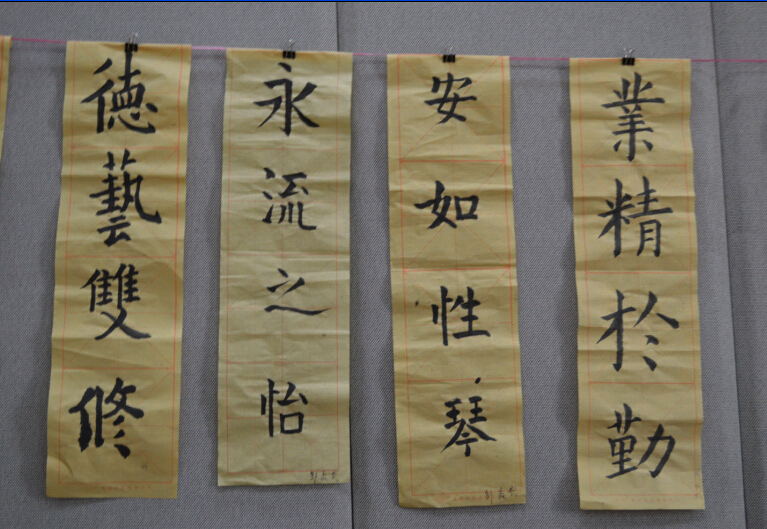 業精於勤
安如性琴
永流之怡
德藝雙修